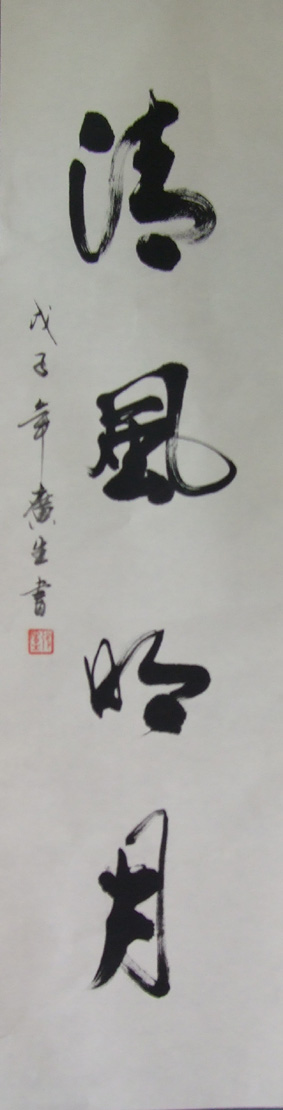 清風明月
戊子年廣生書